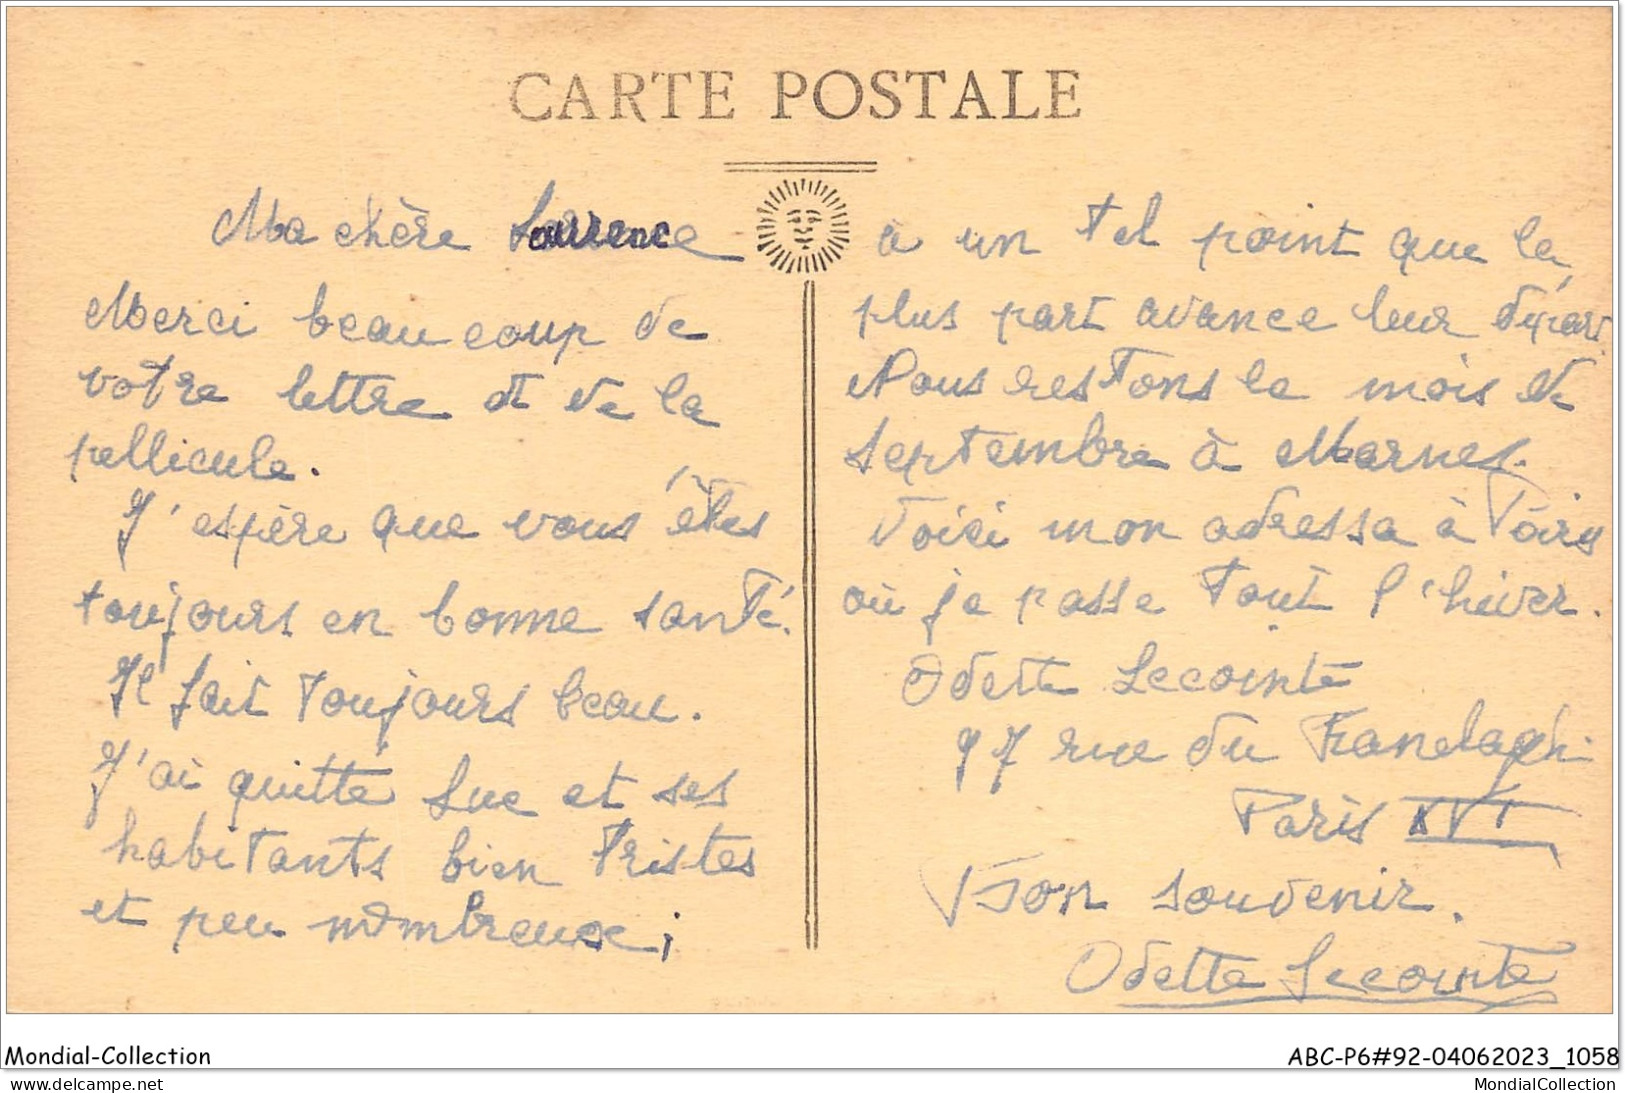 CARTE POSTALE
Ma chère Laurence
Merci beaucoup de
votre lettre et de la
pellicule.
J'espère que vous êtes
toujours en bonne santé.
Il fait toujours beau.
J'ai quitté Luc et ses
habitants bien tristes
et peu nombreux;
à un tel point que la
plus part avance leur départ.
Nous restons le mois de
septembre à Marnes.
Voici mon adressa à Paris
où je passe tout l'hiver.
Odette Lecointe
97 rue du Ranelagh
Paris XVI
Bon souvenir.
Odette Lecointe
Mondial-Collection
ABC-P6#92-04062023_1058
www.delcampe.net
MondialCollection